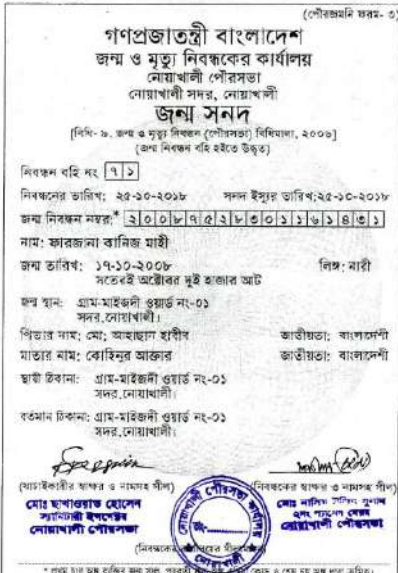 (পৌরজমনি ফরম- ৩)
গণপ্রজাতন্ত্রী বাংলাদেশ
জন্ম ও মৃত্যু নিবন্ধকের কার্যালয়
নোয়াখালী পৌরসভা
নোয়াখালী সদর, নোয়াখালী
জন্ম সনদ
[বিধি- ৯, জন্ম ও মৃত্যু নিবন্ধন (পৌরসভা) বিধিমালা, ২০০৬]
(জন্ম নিবন্ধন বহি হইতে উদ্ধৃত)
নিবন্ধন বহি নং ৭১
নিবন্ধনের তারিখ: ২৫-১০-২০১৮ সনদ ইস্যুর তারিখ:২৫-১০-২০১৮
জন্ম নিবন্ধন নম্বর:* ২০০৮৭৫২৮৩০১১৬১৪৩১
নাম: ফারজানা কানিজ মাহী
জন্ম তারিখ: ১৭-১০-২০০৮ লিঙ্গ: নারী
সতেরই অক্টোবর দুই হাজার আট
জন্ম স্থান: গ্রাম-মাইজদী ওয়ার্ড নং-০১
সদর,নোয়াখালী।
পিতার নাম: মো: আহাছান হাবীব জাতীয়তা: বাংলাদেশী
মাতার নাম: কোহিনুর আক্তার জাতীয়তা: বাংলাদেশী
স্থায়ী ঠিকানা: গ্রাম-মাইজদী ওয়ার্ড নং-০১
সদর,নোয়াখালী।
বর্তমান ঠিকানা: গ্রাম-মাইজদী ওয়ার্ড নং-০১
সদর,নোয়াখালী।
(যাচাইকারীর স্বাক্ষর ও নামসহ সীল) (নিবন্ধকের স্বাক্ষর ও নামসহ সীল)
মোঃ ছাখাওয়াত হোসেন
স্যানিটারী ইন্সপেক্টর
নোয়াখালী পৌরসভা
নোয়াখালী পৌরসভা